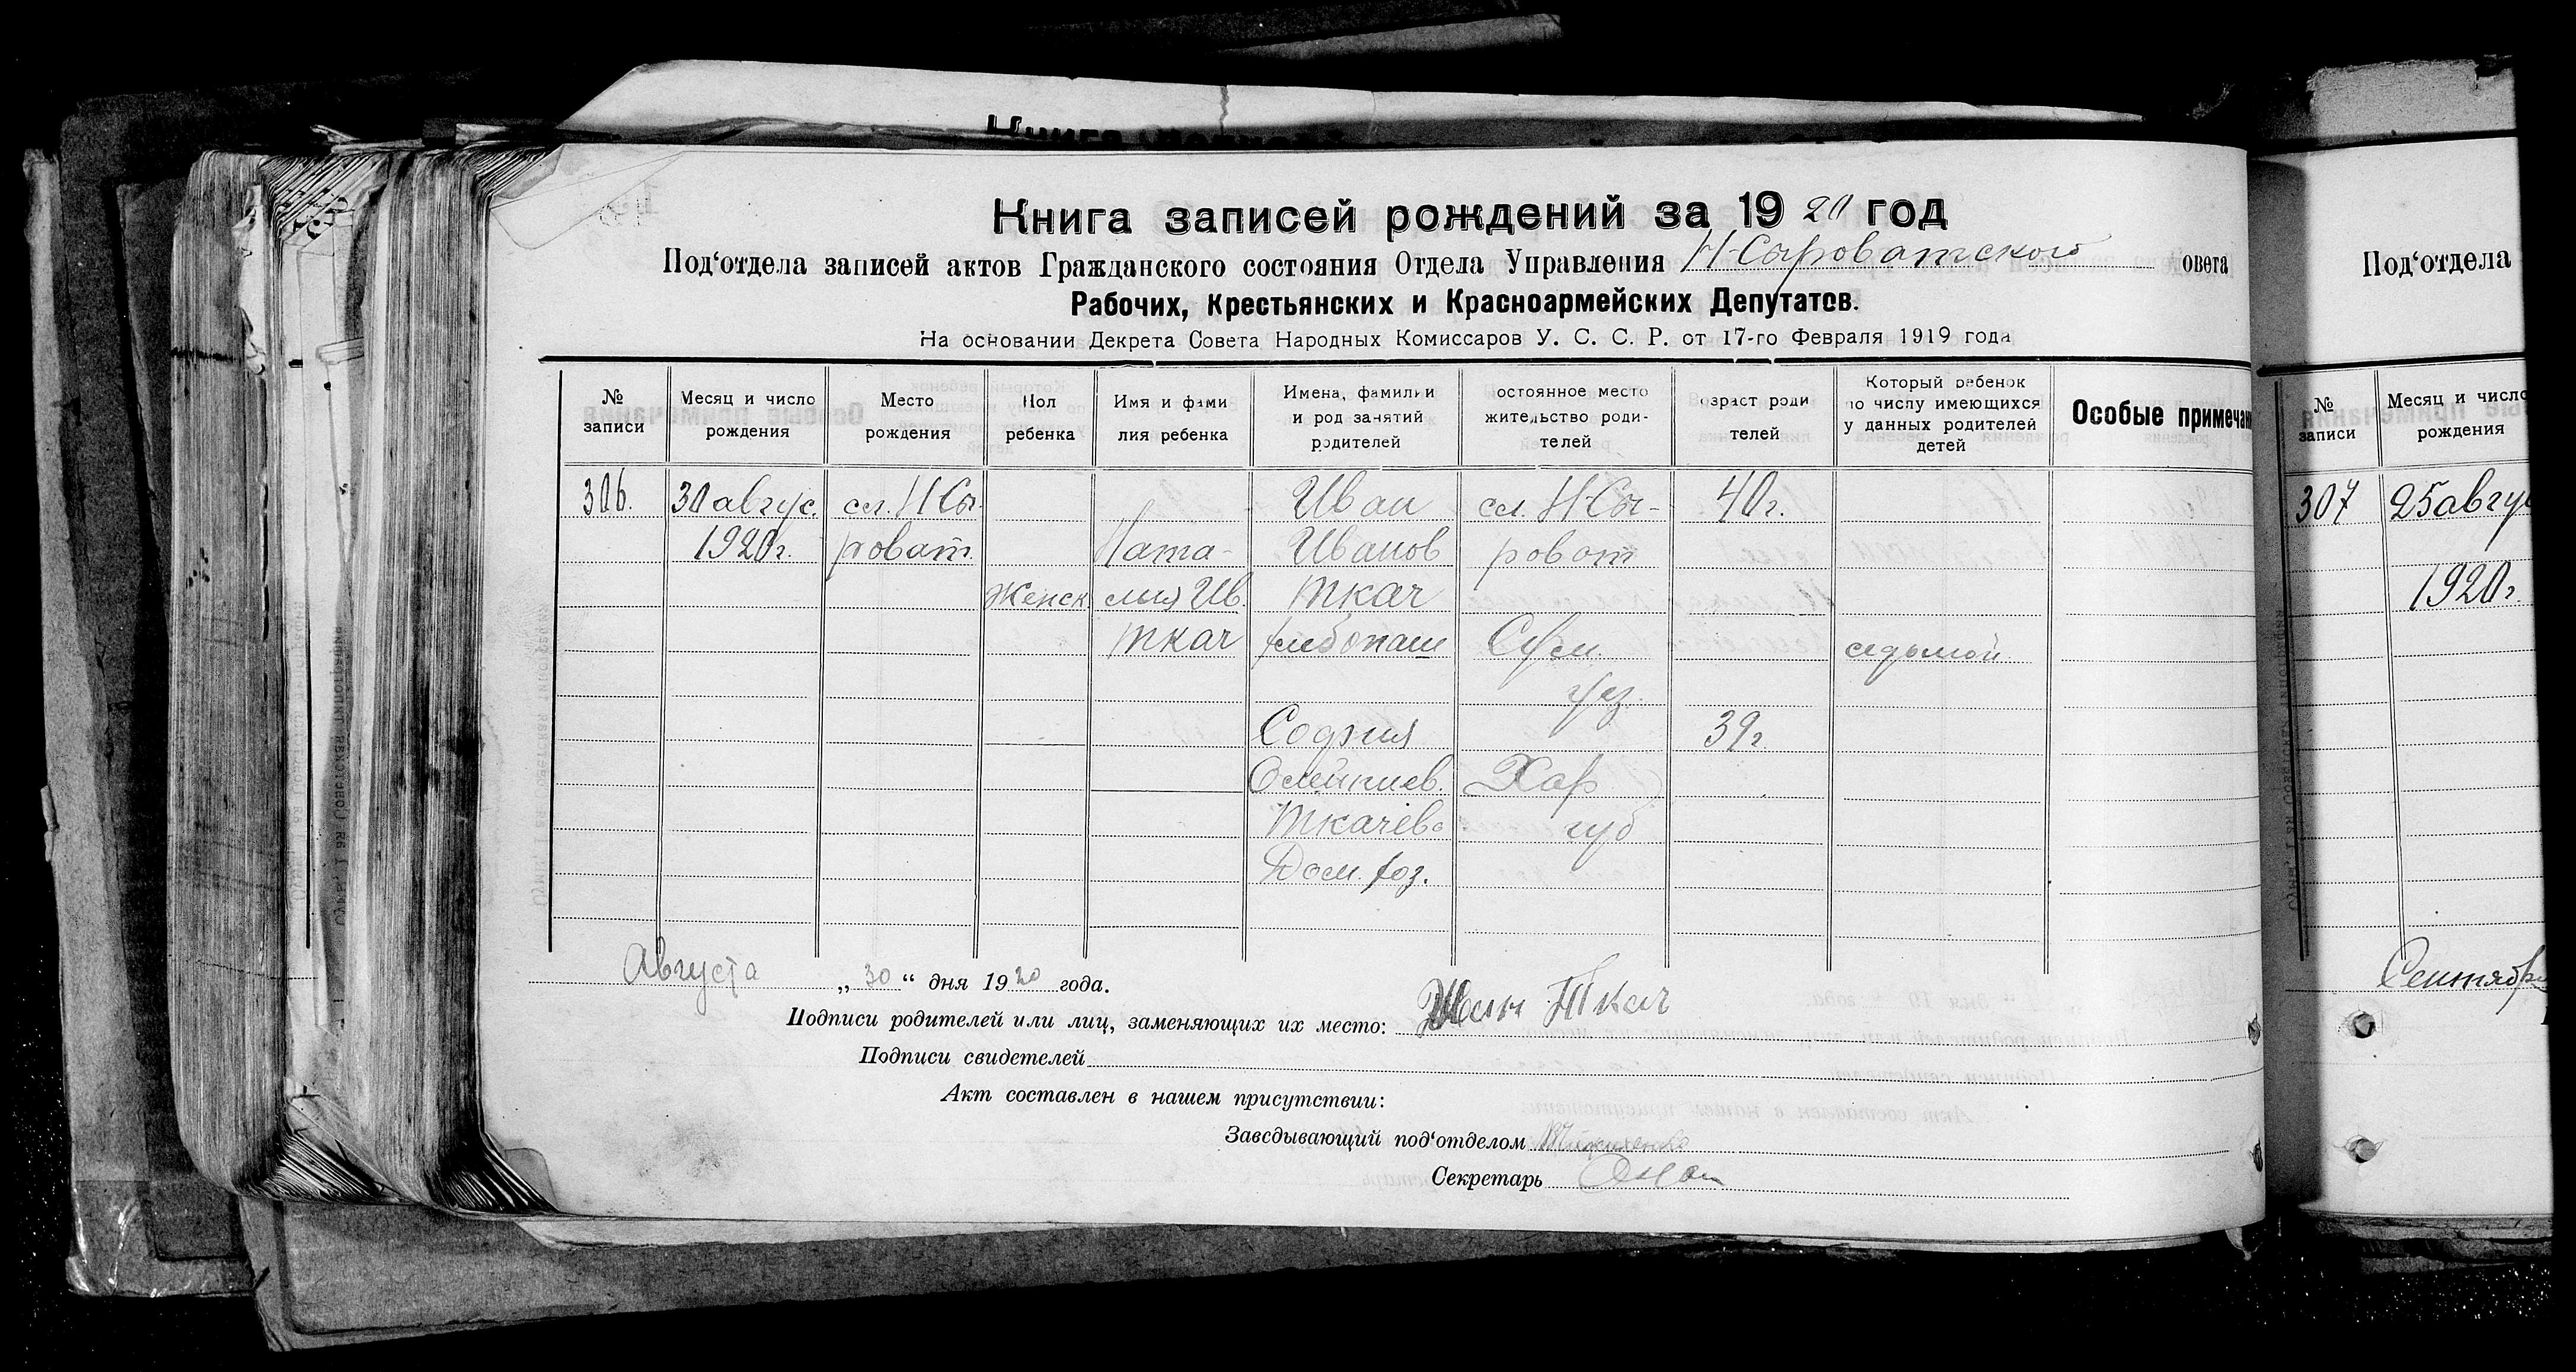 Книга записей рождений за 1920 год
Под'отдела записей актов Гражданского состояния Отдела Управления Н-Сыроватского овета
Рабочих, Крестьянских и Красноармейских Депутатов.
На основании Декрета Совета Народных Комиссаров У. С. С. Р. от 17-го Февраля 1919 года
№ записи
Месяц и число рождения
Место рождения
Пол ребенка
Имя и фами лия ребенка
Имена, фамилии и род занятий родителей
остоянное место жительство роди- телей
озраст роди телей
Который ребенок по числу имеющихся у данных родителей детей
Особые примечан
306.
30 авгус.
1920 г.
сл. Н Сы-
роват.
Женск
Ната-
лия Ив.
Ткач
Иван
Иванов
Ткач
хлебопаш
София
Олейников.
Ткачева
Дом. хоз.
сл. Н-Сы-
роват
Сум.
уез.
Хар
губ
40 г.
39 г.
седьмой
Августа „30“ дня 1920 года.
Подписи родителей или лиц, заменяющих их место: Иван Ткач
Подписи свидетелей
Акт составлен в нашем присутствии:
Заведывающий под'отделом
Секретарь
Под'отдела
№ записи
Месяц и число рождения
307
25 авгус
1920 г.
Сентябр